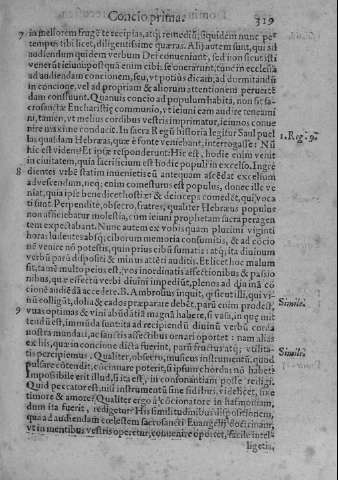 Concio prima.
319
in meliorem frugẽ te recipias, atq; remediũ, siquidem nunc per
tempus tibi licet, diligentissime quæras. Alij autem sunt, qui ad
audiendum quidem verbum Dei conueniant, sed non sicut isti
ad audiendam concionem, seu, vt potiùs dicam, ad dormitandũ
in concione, vel ad propriam & aliorum attentionem
dam consistunt. Quamuis concio ad populum habita, non sit sa-
crosanctæ Eucharistię communio, vt ieiuni eam audire teneami
ni, tamen, vt melius cordibus vestris imprimatur, ieiunos conue
nire maximè conducit. In sacra Regũ historia legitur Saul puel
las quasdam Hebræas, quæ è fonte veniebant, interrogasse: Nũ
hîc est videns? Et ipsæ responderunt: Hîc est, hodie enim venit
in ciuitatem, quia sacrificium est hodie populi in excelso. Ingre
8 dientes vrbẽ statim inuenietis eũ antequam ascẽdat excelsum
ad vescendum, neq; enim comesturus est populus, donec ille ve
niat, quia ipse benedicet hostię: & deinceps comedẽt, qui voca
ti sunt. Perpendite, obsecro, fratres, qualiter Hebræus populus
non afficiebatur molestia, cum ieiuni prophetam sacra peragen
tem expectabant. Nunc autem ex vobis quam plurimi viginti
horas ludentes absq; ciborum memoria consumitis, & ad cõcio
nẽ venire nõ potestis, quin prius cibũ sumatis: atq; ita diuinum
verbũ parũ dispositi & minus attẽti auditis. Et licet hoc malum
sit, tamẽ multo peius est, vos inordinatis affectionibus & passio
nibus, quæ effectũ verbi diuini impediũt, plenos ad
cionẽ audiẽdã accedere. B. Ambrosius inquit, quòd
nũ colligũt, dolia & cados præparare debẽt, parũ enim prodest,
9 vuas optimas & vini abũdãtiã magnã habere, si vasa, in quę mit
tendũ est, immũda sunt: ita ad recipiendũ diuinũ verbũ corda
nostra mundari, ac sanctis affectibus ornari oportet: nam alias
ex his, quæ in concione dicta fuerint, parũ fructus atq; vtilita-
tis percipiemus. Qualiter, obsecro, musicus instrumentũ, quod
pulsare
Impossibile erit illud, si ita est, in consonantiam posse redigi.
Quid peccator est, nisi instrumentũ sine fidibus, videlicet, sine
timore & amore? Qualiter ergo à cõcionatore in harmoniam,
dum ita fuerit, redigetur? His similitudinibus dispositionem,
qua ad audiendam cœlestem sacrosancti Euangelij doctrinam,
vt in mentibus vestris operetur, conuenire oportet, facile intel-
ligetis,
1. Reg. 9.
Simile.
Simile.